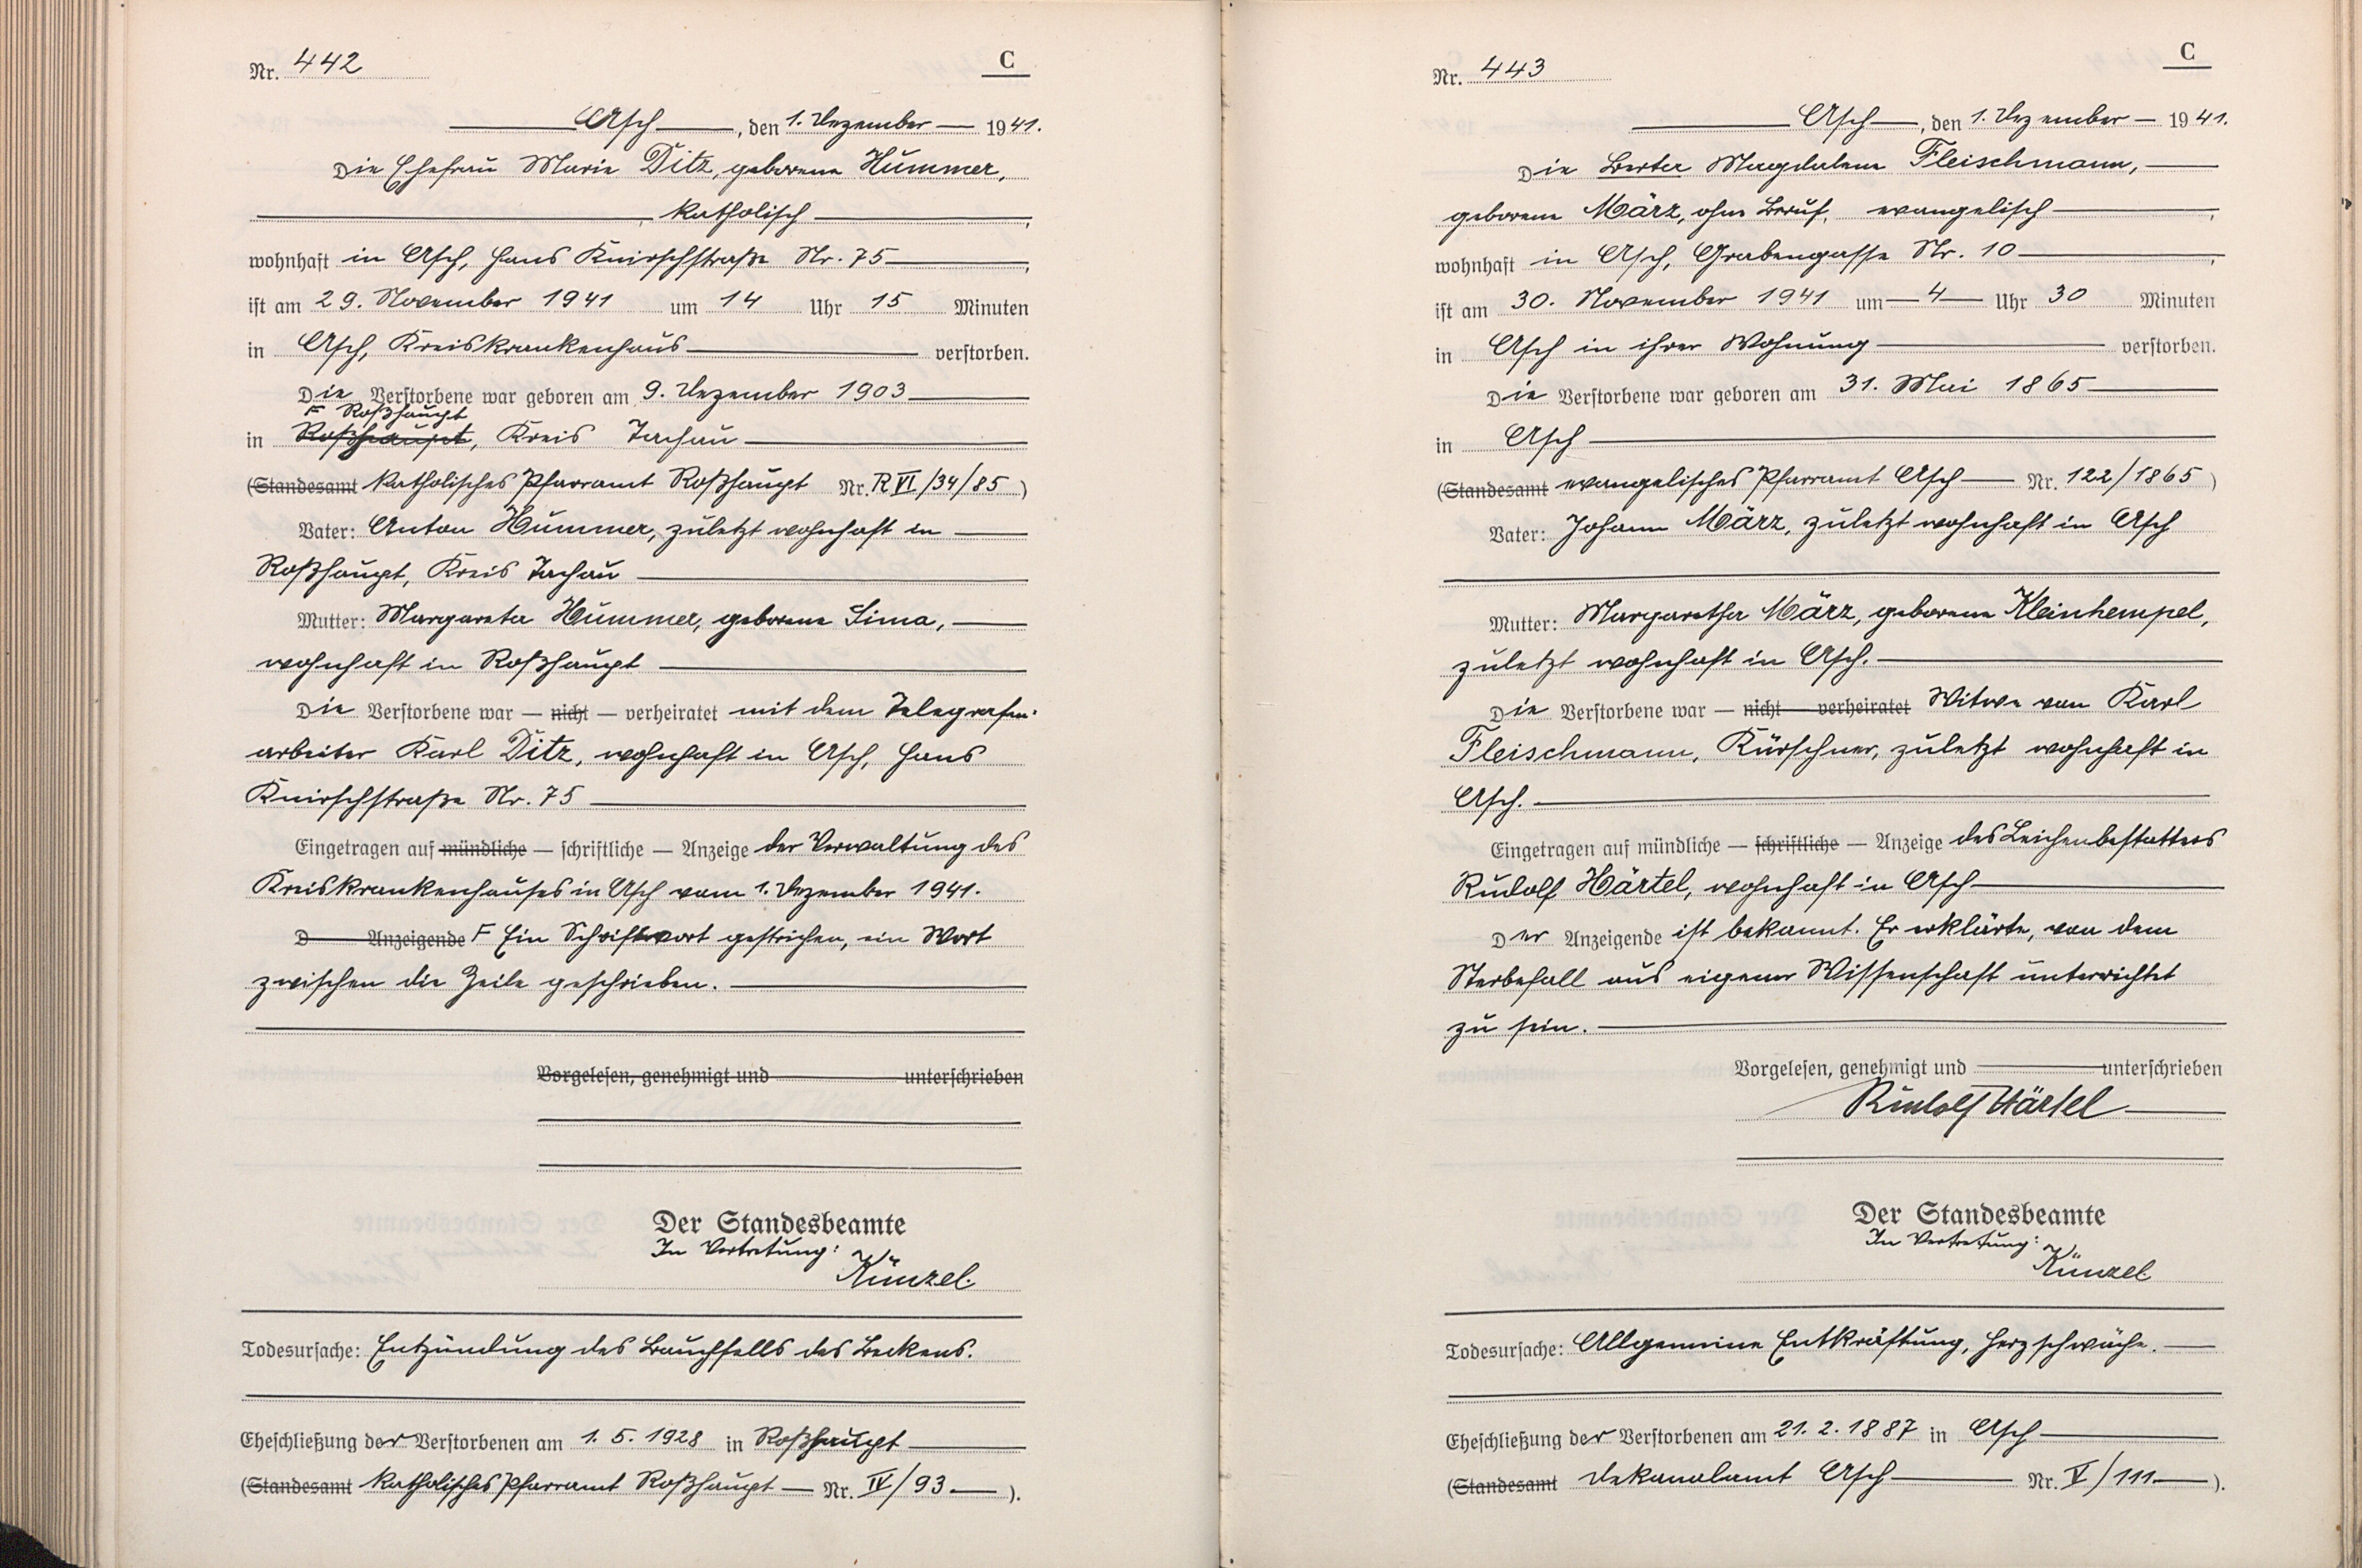 Nr. 442
C
Asch, den 1. Dezember 1941.
Die Ehefrau Marie Ditz, geborene Hummer,
katholisch,
wohnhaft in Asch, Hans Knirschstraße Nr. 75,
ist am 29. November 1941 um 14 Uhr 15 Minuten
in Asch, Kreiskrankenhaus verstorben.
Die Verstorbene war geboren am 9. Dezember 1903
F Roßhaupt
in Roßhaupt, Kreis Tachau
(Standesamt katholisches Pfarramt Roßhaupt Nr. R VI/34/85)
Vater: Anton Hummer, zuletzt wohnhaft in
Roßhaupt, Kreis Tachau
Mutter: Margareta Hummer, geborene Sima,
wohnhaft in Roßhaupt
Die Verstorbene war — nicht — verheiratet mit dem Telegrafen-
arbeiter Karl Ditz, wohnhaft in Asch, Hans
Knirschstraße Nr. 75
Eingetragen auf mündliche — schriftliche — Anzeige der Verwaltung des
Kreiskrankenhauses in Asch vom 1. Dezember 1941.
D Anzeigende F Ein Schriftwort gestrichen, ein Wort
zwischen die Zeile geschrieben.
Vorgelesen, genehmigt und unterschrieben
Der Standesbeamte
In Vertretung:
Künzel.
Todesursache: Entzündung des Bauchfells des Beckens.
Eheschließung der Verstorbenen am 1. 5. 1928 in Roßhaupt
(Standesamt katholisches Pfarramt Roßhaupt — Nr. IV/93 —).
Nr. 443
C
Asch, den 1. Dezember 1941.
Die Berta Magdalena Fleischmann,
geborene März, ohne Beruf, evangelisch,
wohnhaft in Asch, Grabengasse Nr. 10,
ist am 30. November 1941 um 4 Uhr 30 Minuten
in Asch in ihrer Wohnung verstorben.
Die Verstorbene war geboren am 31. Mai 1865
in Asch
(Standesamt evangelisches Pfarramt Asch — Nr. 122/1865)
Vater: Johann März, zuletzt wohnhaft in Asch
Mutter: Margaretha März, geborene Kleinhempel,
zuletzt wohnhaft in Asch.
Die Verstorbene war — nicht — verheiratet Witwe von Karl
Fleischmann, Kürschner, zuletzt wohnhaft in
Asch.
Eingetragen auf mündliche — schriftliche — Anzeige des Leichenbestatters
Rudolf Härtel, wohnhaft in Asch
Der Anzeigende ist bekannt. Er erklärte, von dem
Sterbefall aus eigener Wissenschaft unterrichtet
zu sein.
Vorgelesen, genehmigt und unterschrieben
Rudolf Härtel
Der Standesbeamte
In Vertretung:
Künzel
Todesursache: Allgemeine Entkräftung, Herzschwäche.
Eheschließung der Verstorbenen am 21. 2. 1887 in Asch
(Standesamt Dekanalamt Asch — Nr. V/111 —).